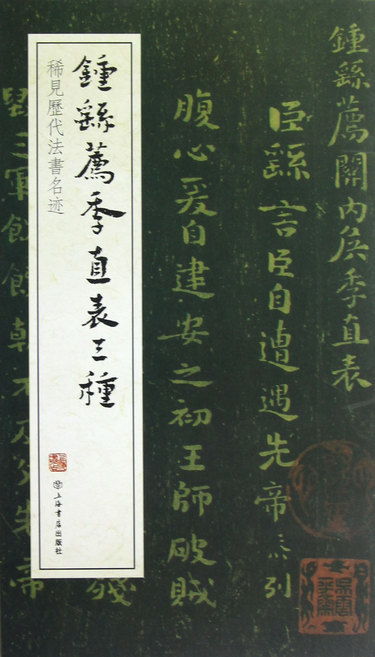 鍾繇薦關內侯季直表
臣繇言臣自遭遇先帝忝列
腹心爰自建安之初王師破賊
殘
三軍
朝不及夕先帝
鍾繇薦季直表三種
稀見歷代法書名迹
上海書店出版社